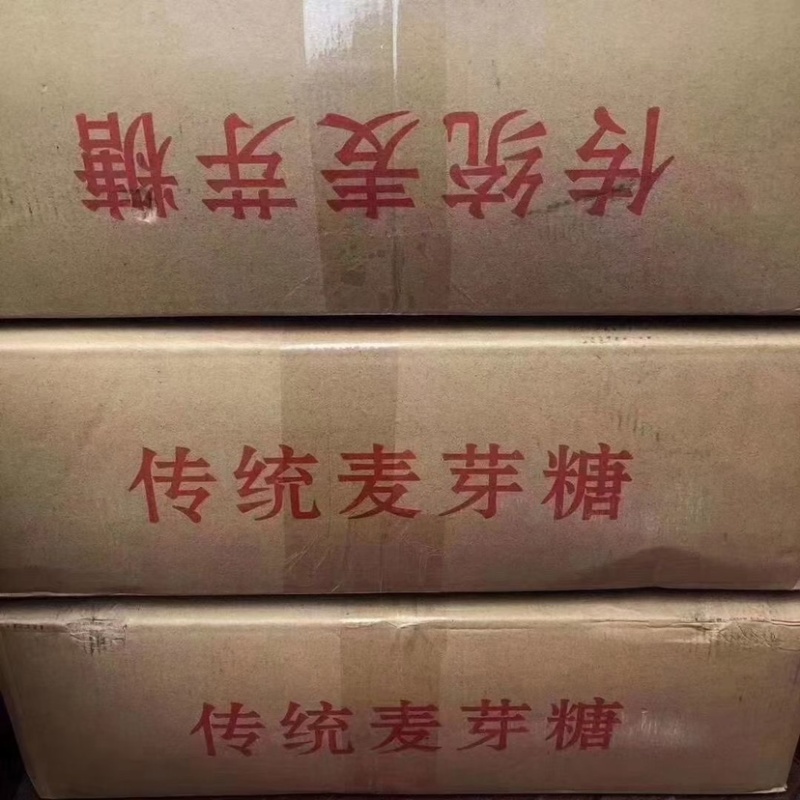 传统麦芽糖
传统麦芽糖
传统麦芽糖